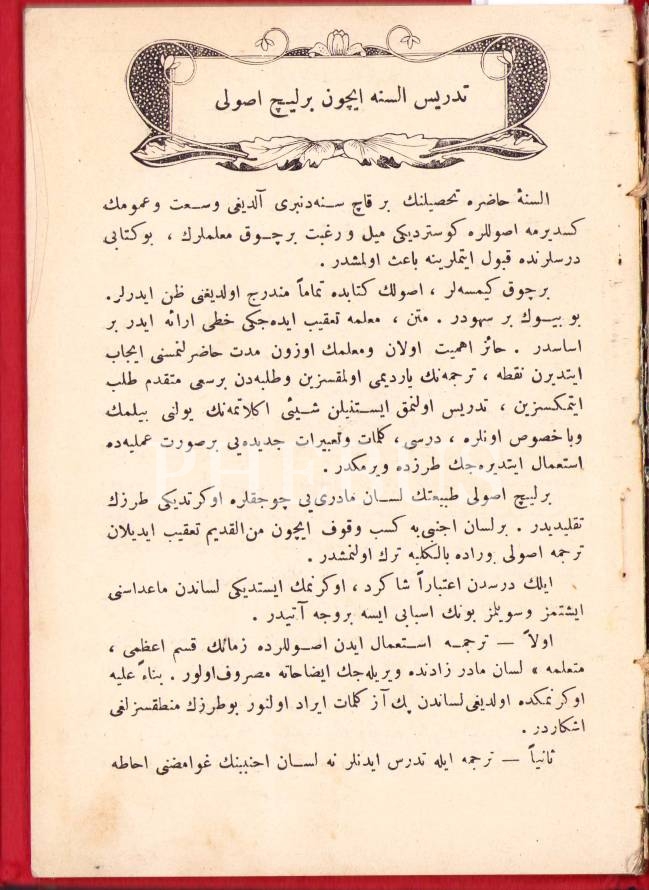 تدریس السنه ایچون برلیچ اصولی
السنهٔ حاضره تحصیلنك بر قاچ سـنه‌دنبری آلدیغی وسـعت وعمومك
كسدیرمه اصوللره كوستردیكی میل و رغبت برچـوق معلملرك ، بوكتابی
درسلرنده قبول ایتملرینه باعث اولمشدر .
برچوق كیمسه‌لر ، اصولك كتابده تماماً مندرج اولدیغنی ظن ایدرلر.
بو بیـوك بر سهودر . متن ، معلمه تعقیب ایده‌جكی خطی ارائه ایدر بر
اساسدر . حائز اهمیت اولان ومعلمك اوزون مدت حاضرلنمسنی ایجاب
ایتدیرن نقطه ، ترجمه‌نك یاردیمی اولمقسزین وطلبه‌دن برسعی متقدم طلب
ایتمكسزین ، تدریس اولنمق ایسـتنیلن شـیئی اكلاتمه‌نك یولنی بیلمك
وباخصوص اونلره ، درسی ، كلمات وتعبیرات جدیده‌یی برصورت عملیه‌ده
استعمال ایتدیره‌جك طرزده ویرمكدر .
برلیچ اصولی طبیعتك لسـان مادری‌یی چوجقلره اوكرتدیكی طرزك
تقلیدیدر . برلسان اجنبی‌یه كسب وقوف ایچون من‌القدیم تعقیب ایدیلان
ترجمه اصولی بوراده بالكلیه ترك اولنمشدر .
ایلك درسدن اعتباراً شاكرد ، اوكرنمك ایستدیكی لساندن ماعداسنی
ایشتمز وسویلمز بونك اسبابی ایسه بروجه آتیدر .
اولاً — ترجمـه اسـتعمال ایدن اصـوللرده زمانك قسم اعظمی ،
متعلمه » لسان مادر زادنده ویریله‌جك ایضاحاته مصروف‌اولور . بناءً علیه
اوكرنمكده اولدیغی‌لساندن پك آز كلمات ایراد اولنور بوطرزك منطقسزلغی
اشكاردر .
ثانیاً — ترجمه ایله تدرس ایدنلر نه لسـان اجنبینك غوامضنی احاطه
PHEBUS